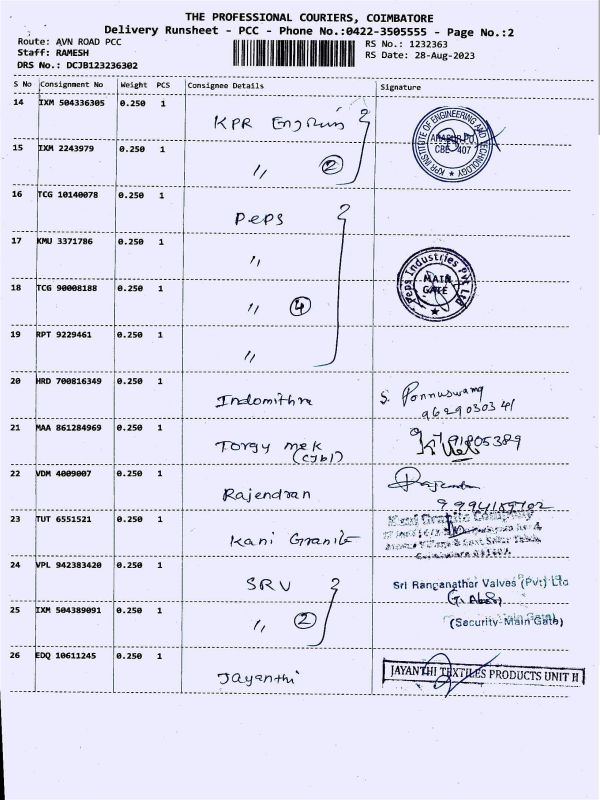 THE PROFESSIONAL COURIERS, COIMBATORE
Delivery Runsheet - PCC - Phone No.:0422-3505555 - Page No.:2
Route: AVN ROAD PCC
RS No.: 1232363
Staff: RAMESH
RS Date: 28-Aug-2023
DRS No.: DCJB123236302
S No Consignment No Weight PCS Consignee Details Signature
14 IXM 504336305 0.250 1 KPR
KPR INSTITUTE OF ENGINEERING AND TECHNOLOGY
CBE 407
15 IXM 2243979 0.250 1 〃 2
16 TCG 10140078 0.250 1 Peps
17 KMU 3371786 0.250 1 〃
Peps Industries Pvt Ltd
MAIN GATE
18 TCG 90008188 0.250 1 〃 4
19 RPT 9229461 0.250 1 〃
20 HRD 700816349 0.250 1 Indomithra S. Ponnuswamy
9629030341
21 MAA 861284969 0.250 1 Torgy mek
(CJB1)
22 VDM 4009007 0.250 1 Rajendran
23 TUT 6551521 0.250 1 Kani Granite
Kani Granite Company
24 VPL 942383420 0.250 1 SRV
Sri Ranganathar Valves (Pvt) Ltd
25 IXM 504389091 0.250 1 〃 2
(Security-Main Gate)
26 EDQ 10611245 0.250 1 Jayanthi
JAYANTHI TEXTILES PRODUCTS UNIT II